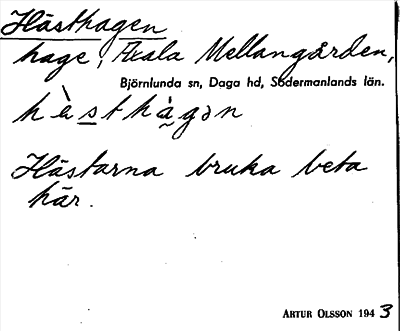 Hästhagen
hage, Äsala Mellangården,
Björnlunda sn, Daga hd, Södermanlands län.
hὰsthàgən
Hästarna bruka beta
här.
ARTUR OLSSON 1943